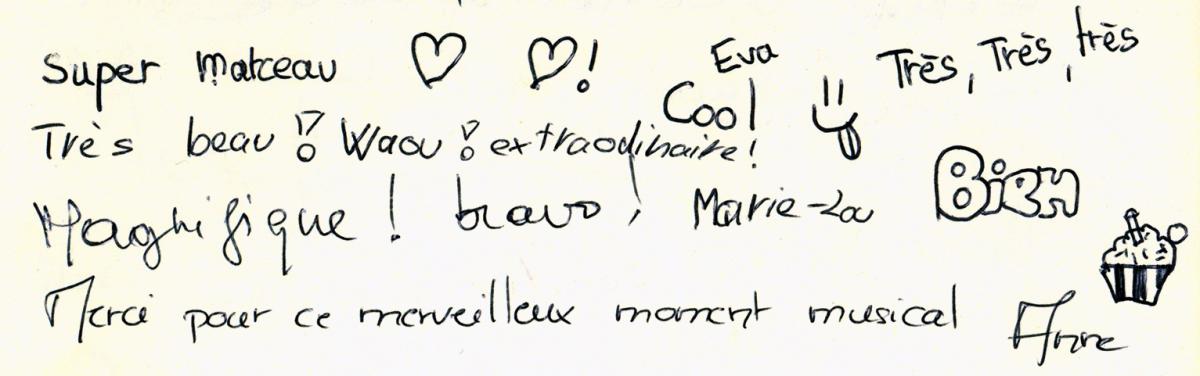 Super matceau ♡ ♡! Eva
Très, Très, très
Cool
Très beau! Waou! extraodinaire!
Bien
Magnifique! bravo! Marie-Lou
Merci pour ce merveilleux moment musical Anne